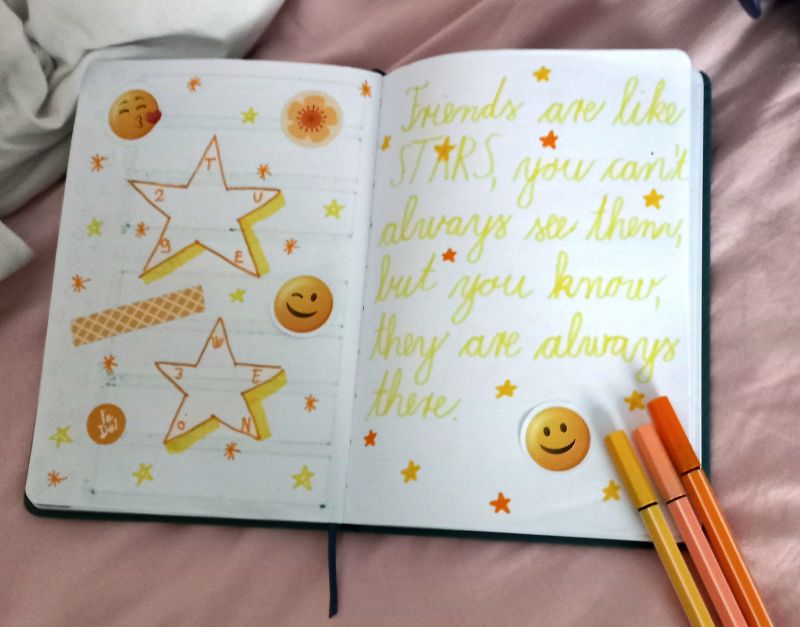 T
U
E
9
2
W
E
N
O
3
To
Do!
Friends are like
STARS, you can't
always see them,
but you know,
they are always
there.